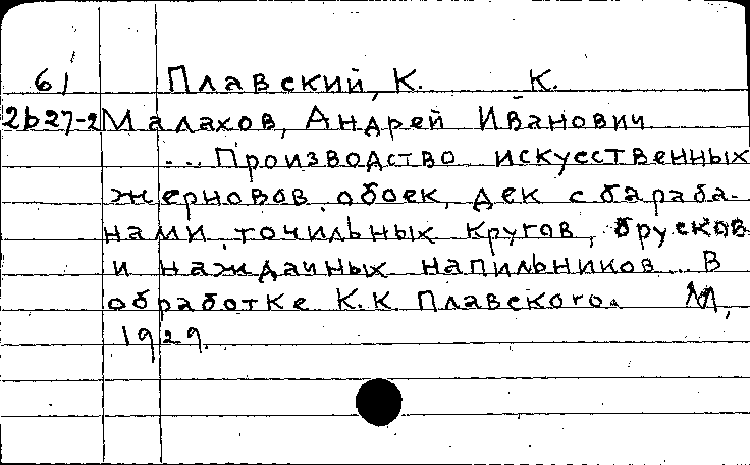 61 Плавский, К. К.
2b27-2 Малахов, Андрей Иванович
... Производство искусственных
жерновов, обоек, дек с бараба-
нами, точильных кругов, брусков
и наждачных напильников... В
обработке К.К Плавского. М,
1929.